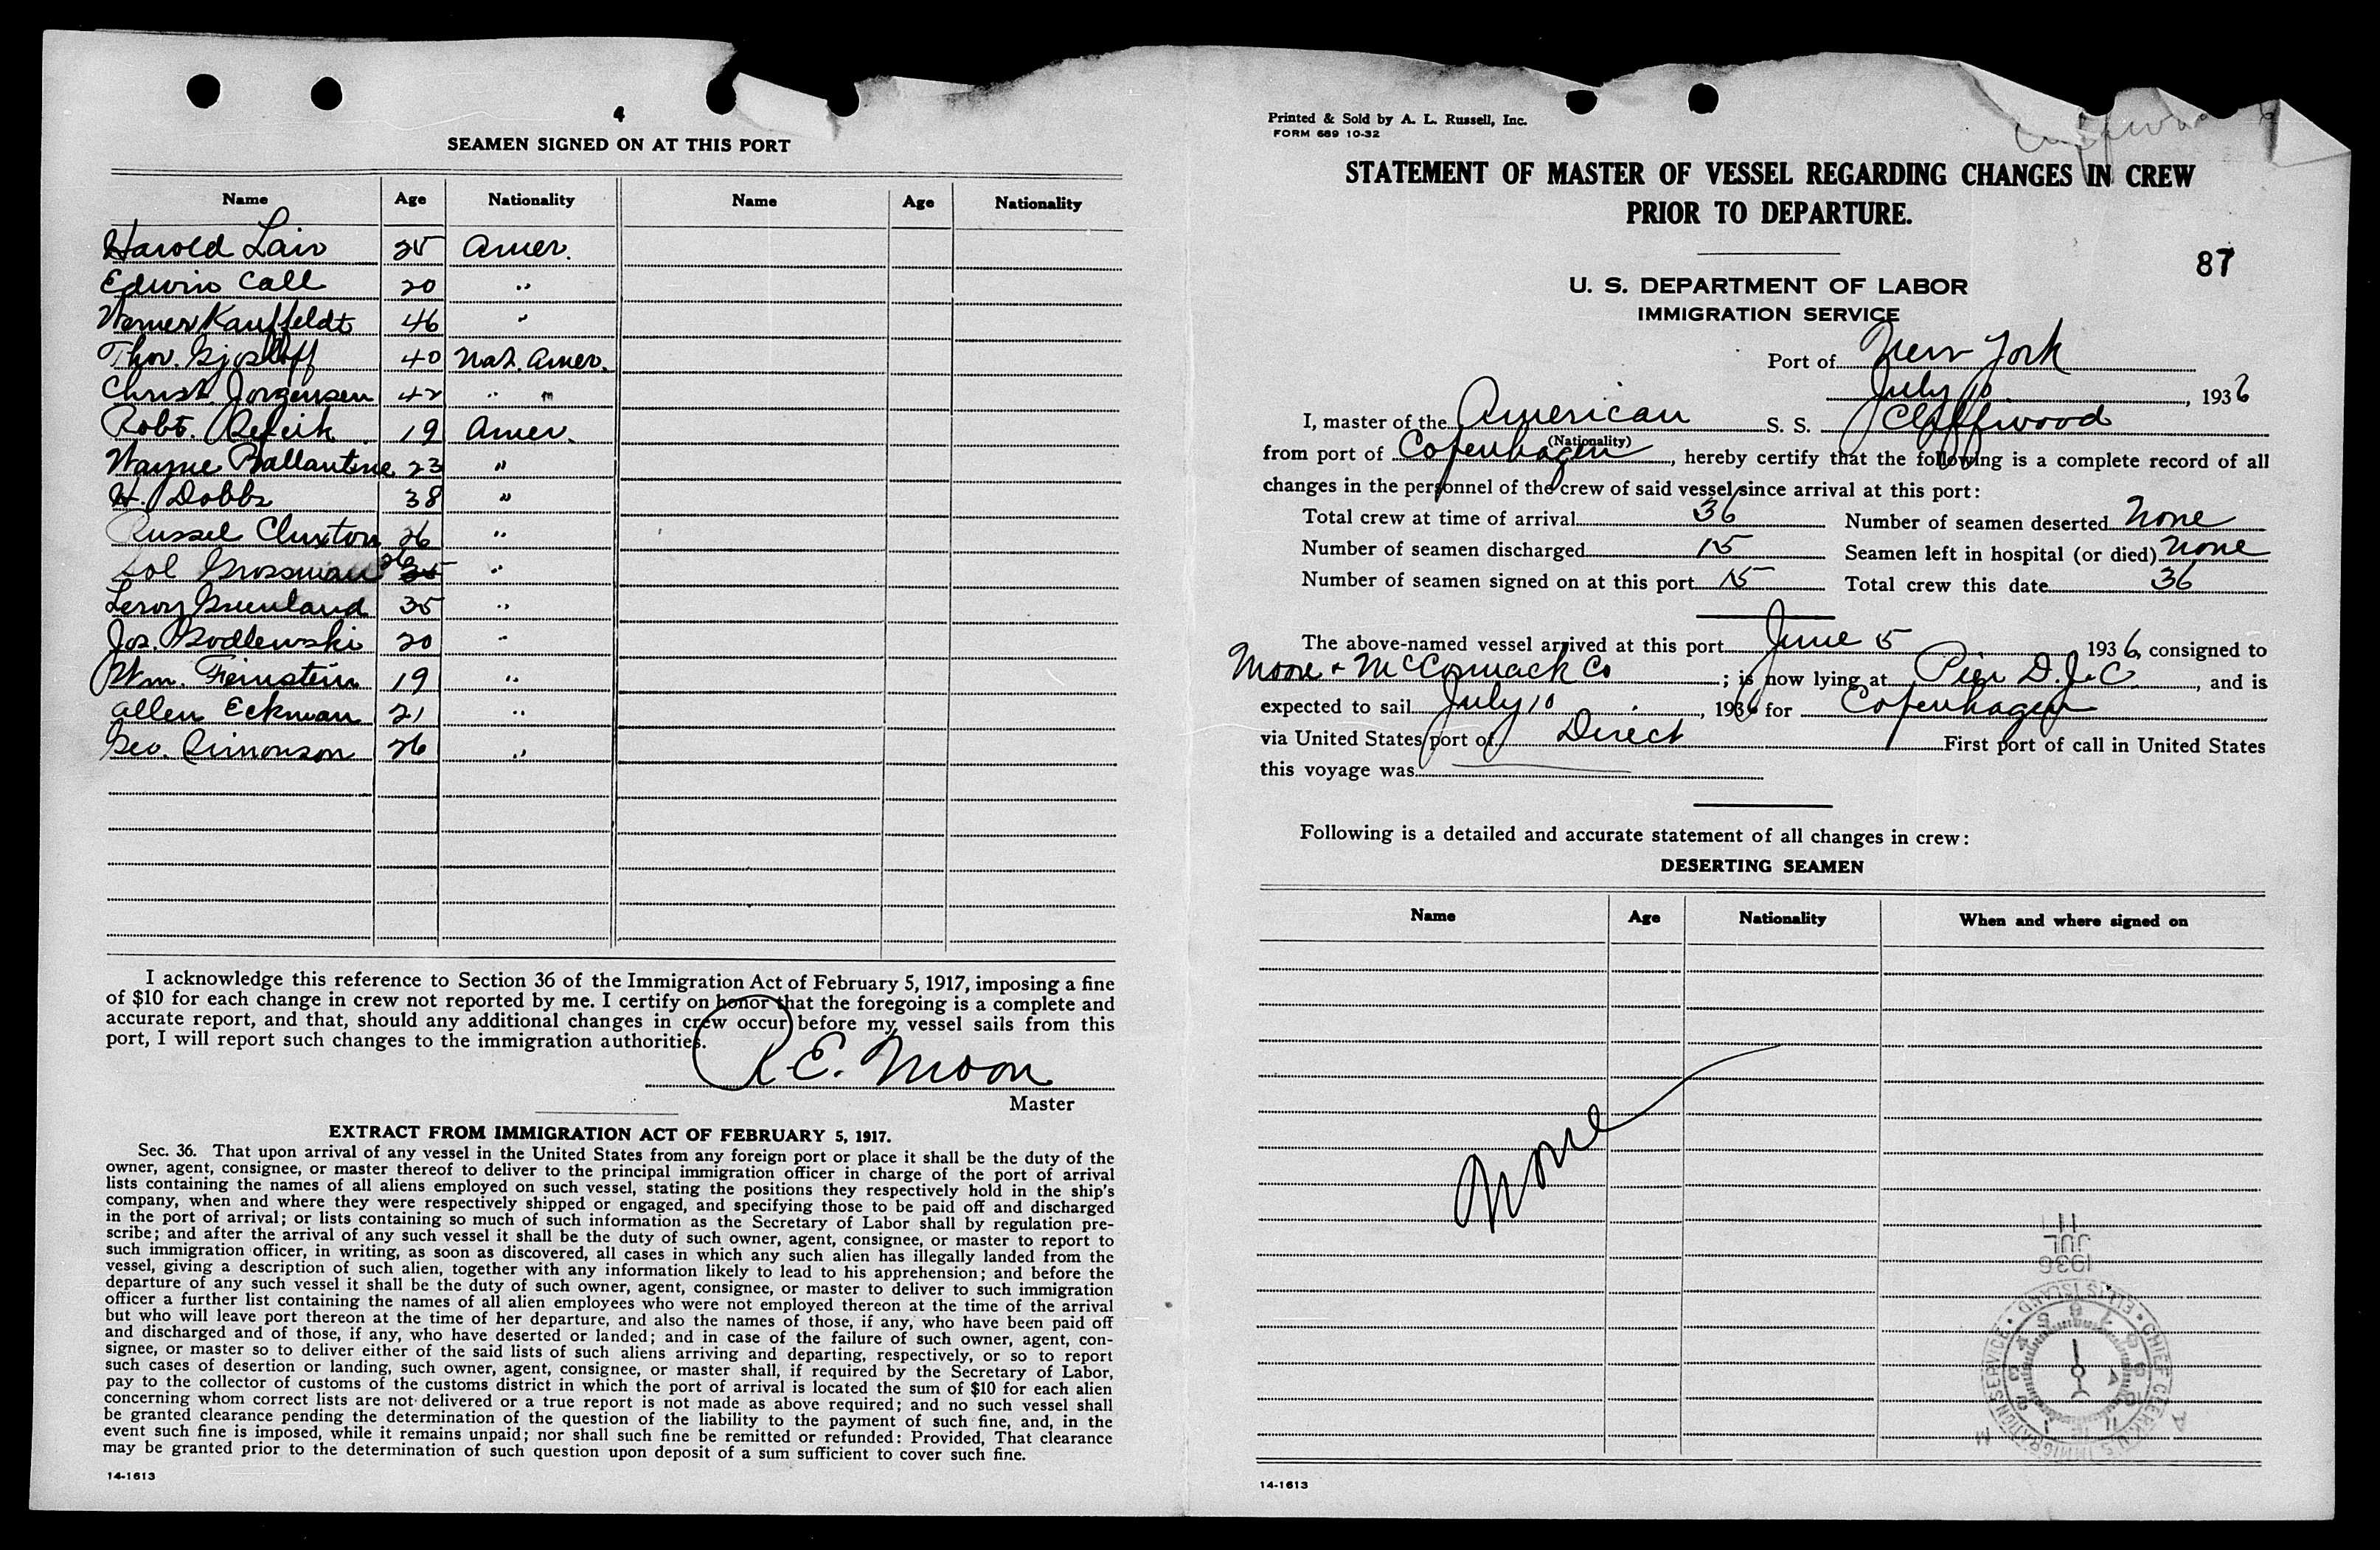 4
SEAMEN SIGNED ON AT THIS PORT
Name Age Nationality Name Age Nationality
Harold Lair 25 Amer.
Edwin Call 20 "
Werner Kauffeldt 46 "
Thor. 40 Nat. Amer.
Christ. Jorgensen 42 " "
Robt. 19 Amer.
Wayne Ballantine 23 "
H. Dobbs 38 "
Russel Cluxton 26 "
Sol Grossman 26 "
Leroy Greenland 35 "
Jos. Godlewski 20 "
Wm. Feinstein 19 "
Allen Eckman 21 "
Geo. Simonson 26 "
I acknowledge this reference to Section 36 of the Immigration Act of February 5, 1917, imposing a fine
of $10 for each change in crew not reported by me. I certify on honor that the foregoing is a complete and
accurate report, and that, should any additional changes in crew occur before my vessel sails from this
port, I will report such changes to the immigration authorities.
R.E. Moon
Master
EXTRACT FROM IMMIGRATION ACT OF FEBRUARY 5, 1917.
Sec. 36. That upon arrival of any vessel in the United States from any foreign port or place it shall be the duty of the
owner, agent, consignee, or master thereof to deliver to the principal immigration officer in charge of the port of arrival
lists containing the names of all aliens employed on such vessel, stating the positions they respectively hold in the ship's
company, when and where they were respectively shipped or engaged, and specifying those to be paid off and discharged
in the port of arrival; or lists containing so much of such information as the Secretary of Labor shall by regulation pre-
scribe; and after the arrival of any such vessel it shall be the duty of such owner, agent, consignee, or master to report to
such immigration officer, in writing, as soon as discovered, all cases in which any such alien has illegally landed from the
vessel, giving a description of such alien, together with any information likely to lead to his apprehension; and before the
departure of any such vessel it shall be the duty of such owner, agent, consignee, or master to deliver to such immigration
officer a further list containing the names of all alien employees who were not employed thereon at the time of the arrival
but who will leave port thereon at the time of her departure, and also the names of those, if any, who have been paid off
and discharged and of those, if any, who have deserted or landed; and in case of the failure of such owner, agent, con-
signee, or master so to deliver either of the said lists of such aliens arriving and departing, respectively, or so to report
such cases of desertion or landing, such owner, agent, consignee, or master shall, if required by the Secretary of Labor,
pay to the collector of customs of the customs district in which the port of arrival is located the sum of $10 for each alien
concerning whom correct lists are not delivered or a true report is not made as above required; and no such vessel shall
be granted clearance pending the determination of the question of the liability to the payment of such fine, and, in the
event such fine is imposed, while it remains unpaid; nor shall such fine be remitted or refunded: Provided, That clearance
may be granted prior to the determination of such question upon deposit of a sum sufficient to cover such fine.
14-1613
Printed & Sold by A. L. Russell, Inc.
FORM 689 10-32
STATEMENT OF MASTER OF VESSEL REGARDING CHANGES IN CREW
PRIOR TO DEPARTURE.
87
U. S. DEPARTMENT OF LABOR
IMMIGRATION SERVICE
Port of New York
July 10, 1936
I, master of the American S. S. Cliffwood
(Nationality)
from port of Copenhagen, hereby certify that the following is a complete record of all
changes in the personnel of the crew of said vessel since arrival at this port:
Total crew at time of arrival 36 Number of seamen deserted None
Number of seamen discharged 15 Seamen left in hospital (or died) None
Number of seamen signed on at this port 15 Total crew this date 36
The above-named vessel arrived at this port June 5 1936, consigned to
Moore & McCormack Co; is now lying at Pier D. J.C., and is
expected to sail July 10, 1936 for Copenhagen
via United States port of Direct First port of call in United States
this voyage was
Following is a detailed and accurate statement of all changes in crew:
DESERTING SEAMEN
Name Age Nationality When and where signed on
None
11
JUL
1936
CHIEF CLERK U.S. IMMIGRATION SERVICE • ELLIS ISLAND
14-1613